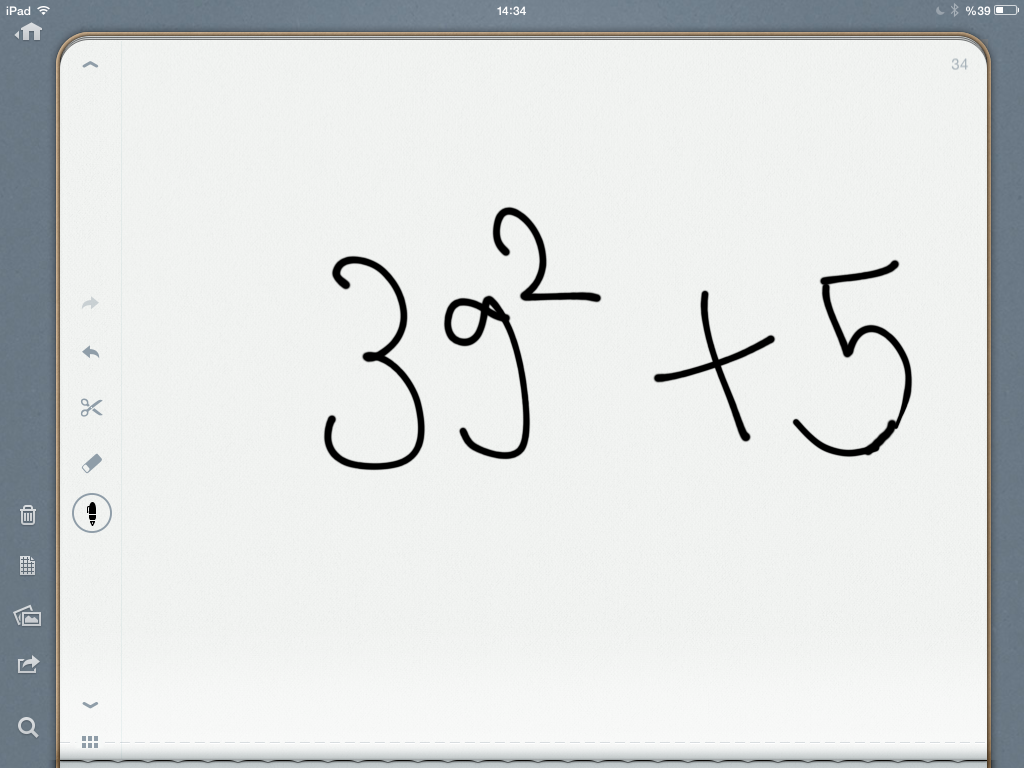 iPad 14:34 %39
34
3g² + 5